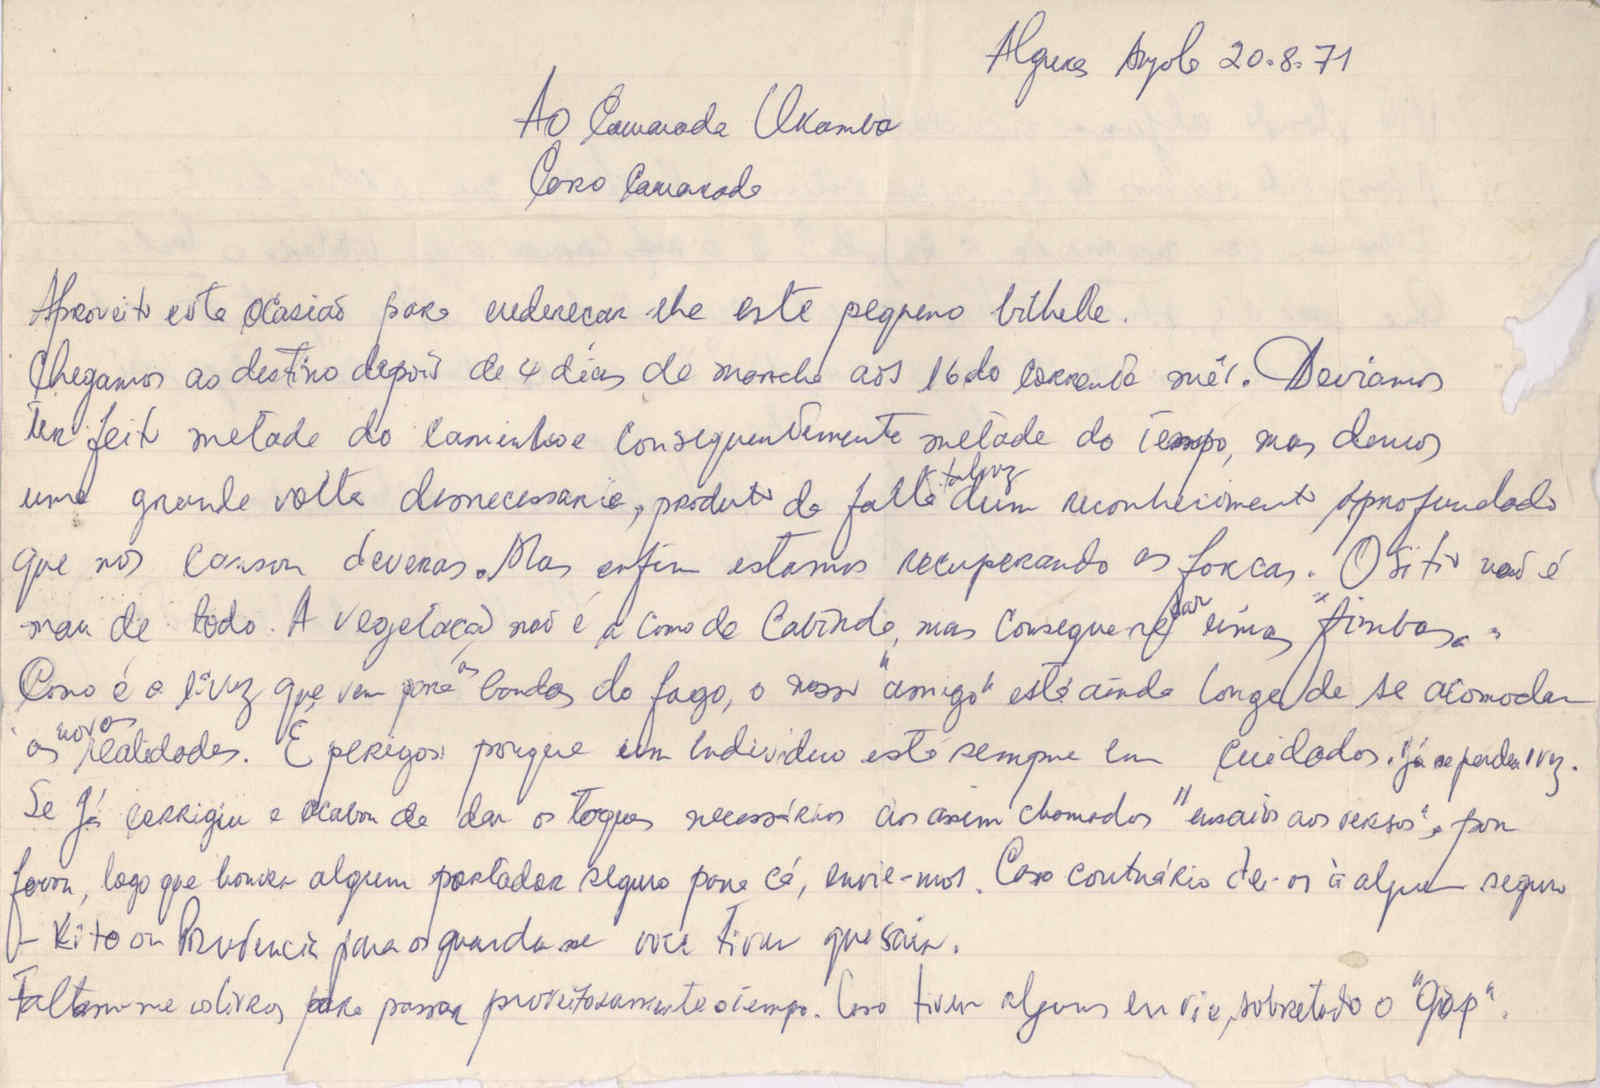 Algures Angola 20.8.71
Ao Camarada Ukamba
Caro Camarada
Aproveito esta ocasião para enderecar-lhe este pequeno bilhete.
Chegamos ao destino depois de 4 dias de marcha aos 16 do corrente mês. Deviamos
ter feito metade do caminho e consequentemente metade do tempo, mas demos
uma grande volta desnecessaria, produto da falta talvez dum reconhecimento aprofundado
que nos cansou deveras. Mas enfim estamos recuperando as forcas. O sitio não é
mau de todo. A vegetação não é a como de Cabinda, mas consegue dar umas "timbas."
Como é a 1ª vez que vem para as bandas do fogo, o nosso "amigo" está ainda longe de se acomodar
as novas realidades. É perigoso porque um individuo está sempre em cuidados. Já se perdeu 1 vez.
Se já corrigiu e acabou de dar os toques necessários aos assim chamados "ensaios aos versos", por
favor, logo que houver algum portador seguro para cá, envie-mos. Caso contrário dê-os à alguem seguro
- Kito ou Prudencia para os guardar se voce tiver que sair.
Faltam-me os livros para passar proveitosamente o tempo. Caso tiver alguns envie, sobretudo o "Giap".